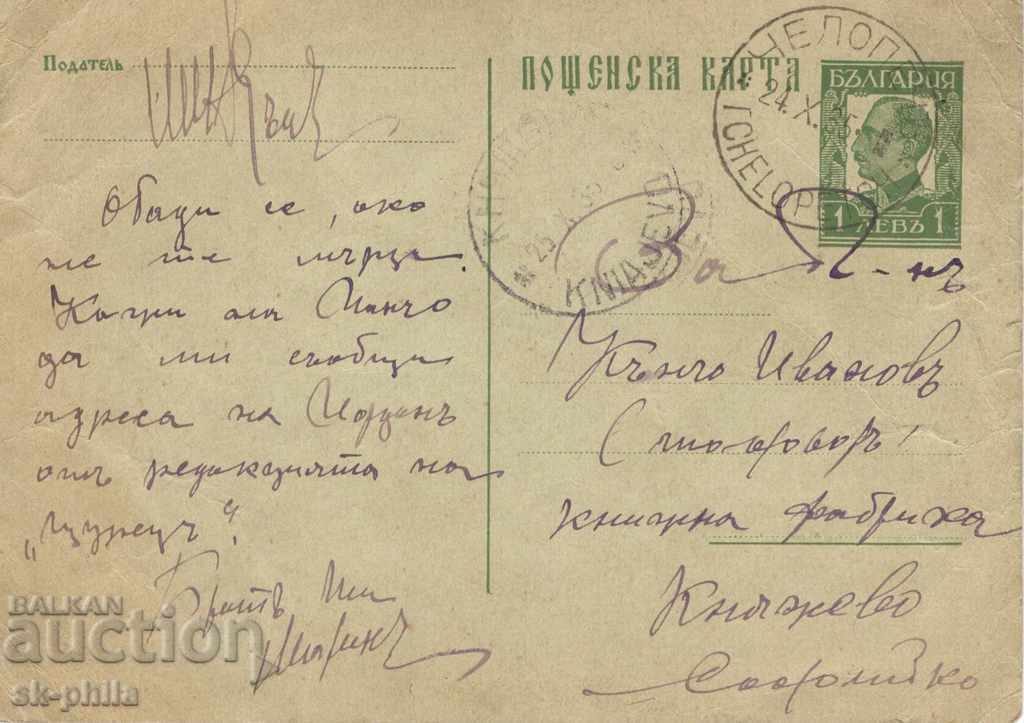 Податель
ПОЩЕНСКА КАРТА
БЪЛГАРИЯ
1 ЛЕВЪ 1
ЧЕЛОПЕЧ
24. X. 35.
TCHELOPE
KNIAJEVO
Обади се, ако
не те мързи.
Кажи на Минчо
да ми съобщи
адреса на Йорданъ
отъ редакцията на
„Щурецъ“.
Братъ ти
Маринъ
За Г-нъ
Кънчо Ивановъ
Стоховоръ
книжна фабрика
Княжево
Софийско
BALKAN
auction
sk-phila